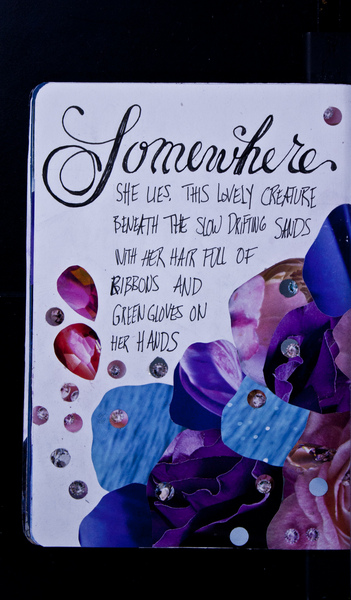 Somewhere
SHE LIES. THIS LOVELY CREATURE
BENEATH THE SLOW DRIFTING SANDS
WITH HER HAIR FULL OF
RIBBONS AND
GREEN GLOVES ON
HER HANDS